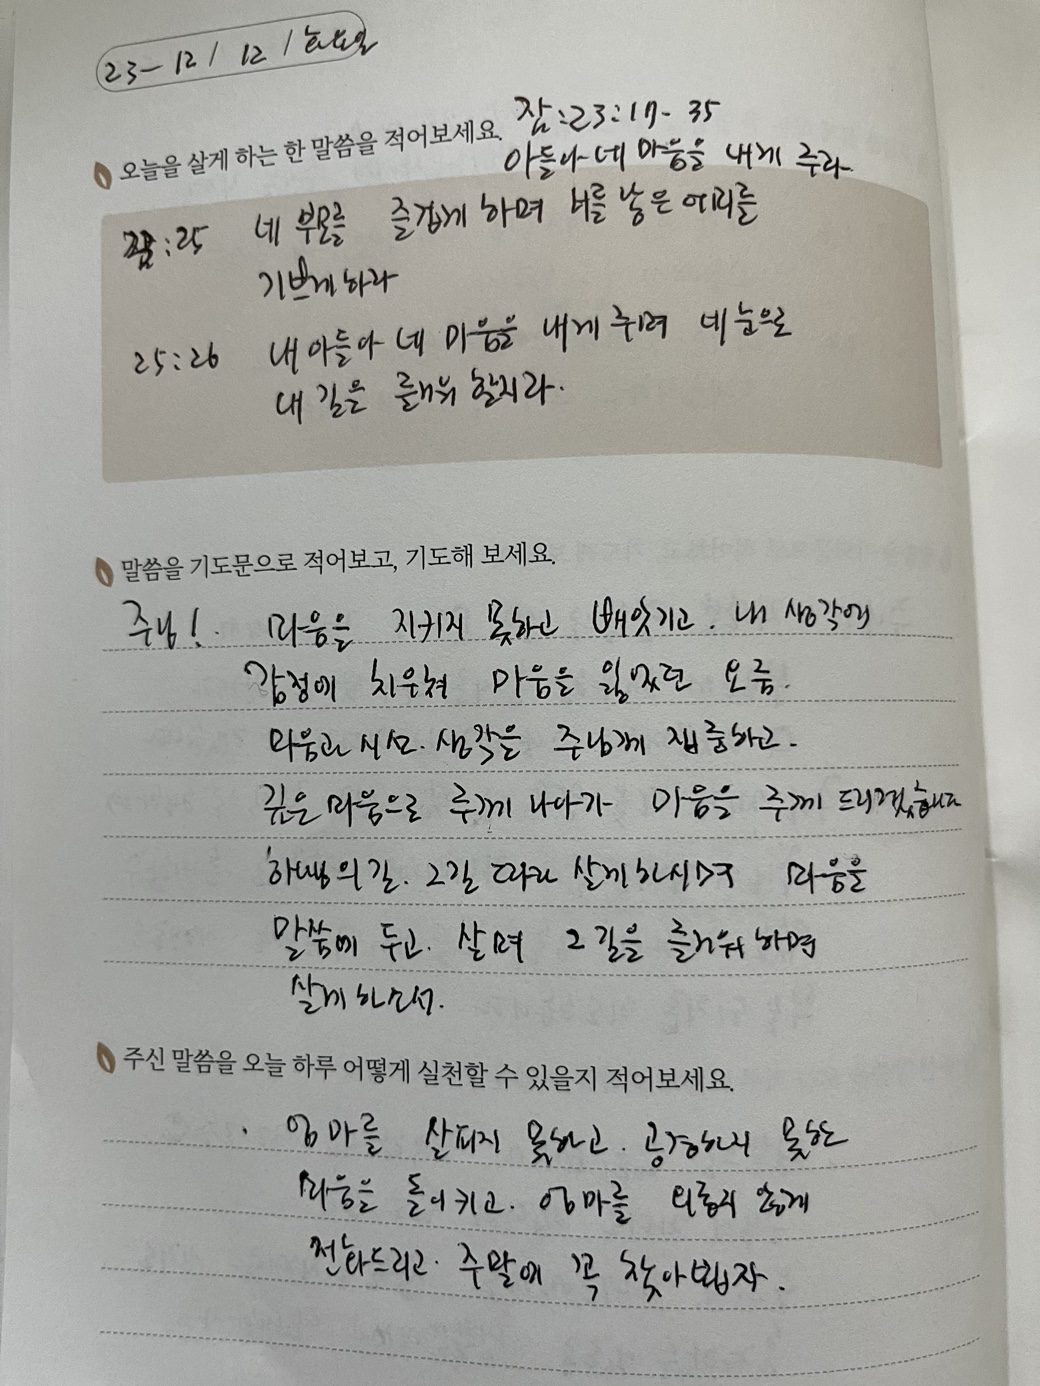 23-12/12/화요일
잠:23:17-35
오늘을 살게 하는 한 말씀을 적어보세요.
아들아 네 마음을 내게 주라
잠:25 네 부모를 즐겁게 하며 너를 낳은 어미를
기쁘게 하라
25:26 내 아들아 네 마음을 내게 주며 네 눈으로
내 길을 할지라.
말씀을 기도문으로 적어보고, 기도해 보세요.
주님! 마음을 지키지 못하고 빼앗기고. 내 생각에
감정에 치우쳐 마음을 잃었던 요즘.
마음과 시선. 생각을 주님께 집중하고.
깊은 마음으로 주께 나아가 마음을 주께 드리겠습니다
의 길. 그길 따라 살게 하시며 마음을
말씀에 두고. 살며 그 길을 즐거워 하며
살게 하소서.
주신 말씀을 오늘 하루 어떻게 실천할 수 있을지 적어보세요.
· 엄마를 살피지 못하고. 공경하지 못한
마음을 돌이키고. 엄마를 외롭지 않게
전화드리고. 주말에 꼭 찾아뵙자.